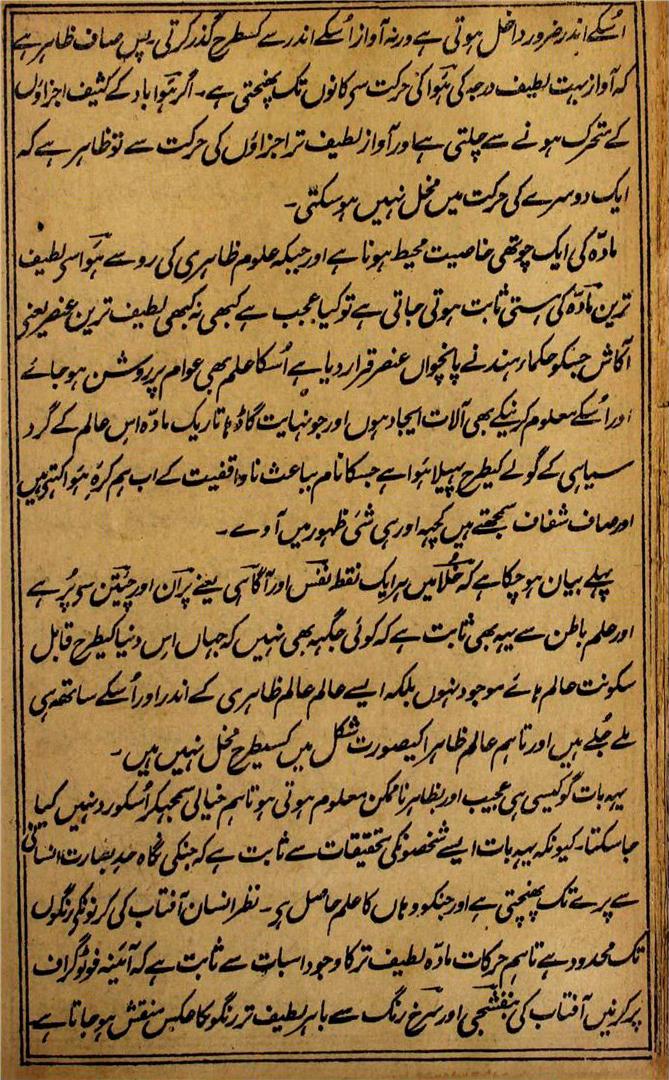 اُسکے اندر ضرور داخل ہوتی ہے ورنہ آواز اُسکے اندر سے کسطرح گذر کرتی۔ پس صاف ظاہر ہے
کہ آواز بہت لطیف درجہ کی ہَوا کی حرکت سی کانوں تک پھنچتی ہے۔ اگر ہَوا باد کے کثیف اجزاؤں
کے متحرک ہونے سے چلتی ہے اور آواز لطیف تر اجزاؤں کی حرکت سے تو ظاہر ہے کہ
ایک دوسرے کی حرکت میں مخل نہیں ہو سکتی۔
مادّہ کی ایک چوتھی خاصیت محیط ہونا ہے اور جبکہ علوم ظاہری کی رو سے ہَوا سی لطیف
ترین مادّہ کی ہستی ثابت ہوتی جاتی ہے تو کیا عجب ہے کبھی نہ کبھی لطیف ترین عنصر یعنی
آکاش جنکو حکماء ہند نے پانچواں عنصر قرار دیا ہے اُسکا علم بھی عوام پر روشن ہو جائے
اور اُسکے معلوم کرنیکے بھی آلات ایجاد ہوں اور جو نہایت گاڈہا تاریک مادّہ اس عالم کے گرد
سیاہی کے گولے کیطرح پہیلا ہَوا ہے جسکا نام بباعث ناواقفیت کے اب ہم کرّہ ہَوا کہتی ہیں
اور صاف شفاف سمجھتے ہیں کچہہ اور ہی شئ ظہور میں آوے۔
پہلے بیان ہو چکا ہے کہ خُلا میں ہر ایک نقط نفَس اور آگاہی یعنے پران اور چیتن سی پُر ہے
اور علم باطن سے یہہ بھی ثابت ہے کہ کوئی جگہہ بھی نہیں کہ جہاں اس دنیا کیطرح قابل
سکونت عالم ہائے موجود نہوں بلکہ ایسے عالم عالم ظاہری کے اندر اور اُسکے ساتھہ ہی
ملے جُلے ہیں اور تاہم عالم ظاہرا کیصورت شکل میں کسیطرح مخل نہیں ہیں۔
یہہ بات گو کیسی ہی عجیب اور بظاہر ناممکن معلوم ہوتی ہو تاہم خیالی سمجہکر اُسکو رد نہیں کیا
جا سکتا۔ کیونکہ یہہ بات ایسے شخصونکی تحقیقات سے ثابت ہے کہ جنکی نگاہ حد بصارت انسانی
سے پرے تک پھنچتی ہے اور جنکو وہاں کا علم حاصل ہی۔ نظر انسان آفتاب کی کرنونکی رنگوں
تک محدود ہے تاہم حرکات مادّہ لطیف تر کا وجود اسبات سے ثابت ہے کہ آئینہ فوٹوگراف
پر کرنیں آفتاب کی بنفشئی اور سرخ رنگ سے باہر لطیف تر رنگونکا عکس منقش ہو جاتا ہے